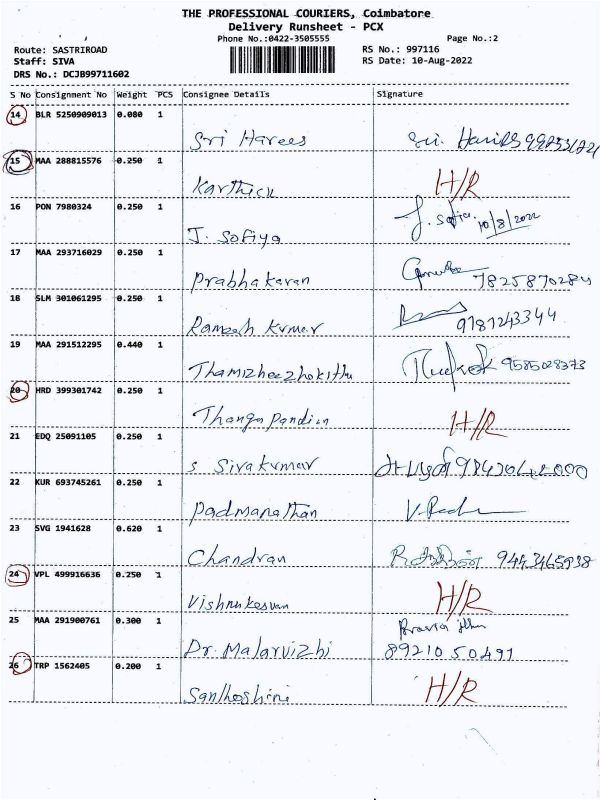 THE PROFESSIONAL COURIERS, Coimbatore
Delivery Runsheet - PCX
Phone No.:0422-3505555 Page No.:2
Route: SASTRIROAD RS No.: 997116
Staff: SIVA RS Date: 10-Aug-2022
DRS No.: DCJB99711602
S No Consignment No Weight PCS Consignee Details Signature
14 BLR 5250909013 0.080 1
Sri Harees
15 MAA 288815576 0.250 1
Karthick H/R
16 PON 7980324 0.250 1
J. Sofiya J. Sofia 10/8/2022
17 MAA 293716029 0.250 1
Prabhakaran
18 SLM 301061295 0.250 1
Ramesh Kumar 9787243344
19 MAA 291512295 0.440 1
Thamizheezhokithu 9585028373
20 HRD 399301742 0.250 1
Thangapandian H/R
21 EDQ 25091105 0.250 1
S Sivakumar
22 KUR 693745261 0.250 1
Padmanathan
23 SVG 1941628 0.620 1
Chandran 9443465938
24 VPL 499916636 0.250 1
Vishnukesvan H/R
25 MAA 291900761 0.300 1
Dr. Malarvizhi 8921050491
26 TRP 1562405 0.200 1
Santhoshini H/R